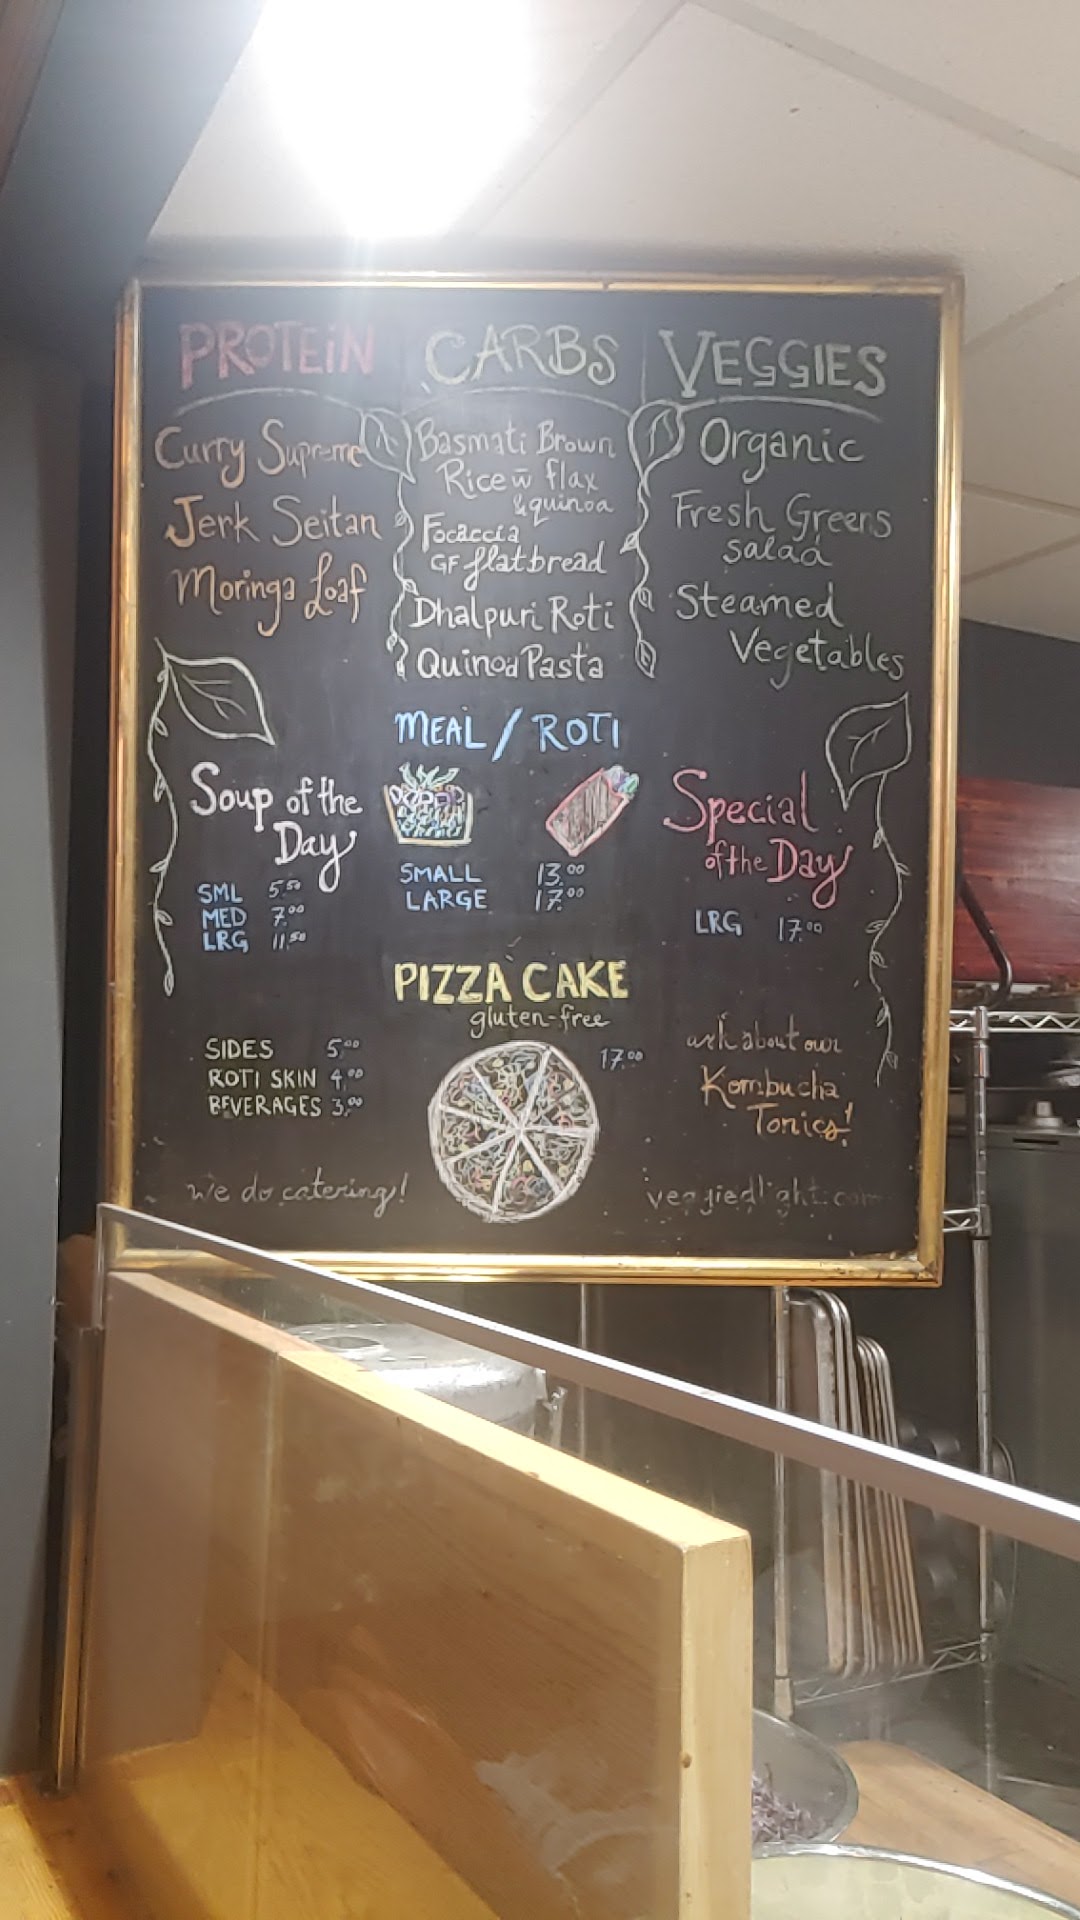 PROTEiN
Curry Supreme
Jerk Seitan
Moringa Loaf
CARBS
Basmati Brown
Rice w̄ flax
& quinoa
Focaccia
GF flatbread
Dhalpuri Roti
Quinoa Pasta
VEGGIES
Organic
Fresh Greens
salad
Steamed
Vegetables
MEAL / ROTI
SMALL 13.00
LARGE 17.00
Soup of the
Day
SML 5.50
MED 7.00
LRG 11.50
Special
of the Day
LRG 17.00
PIZZA CAKE
gluten-free
17.00
SIDES 5.00
ROTI SKIN 4.00
BEVERAGES 3.00
ask about our
Kombucha
Tonics!
we do catering!
veggiedlight.com